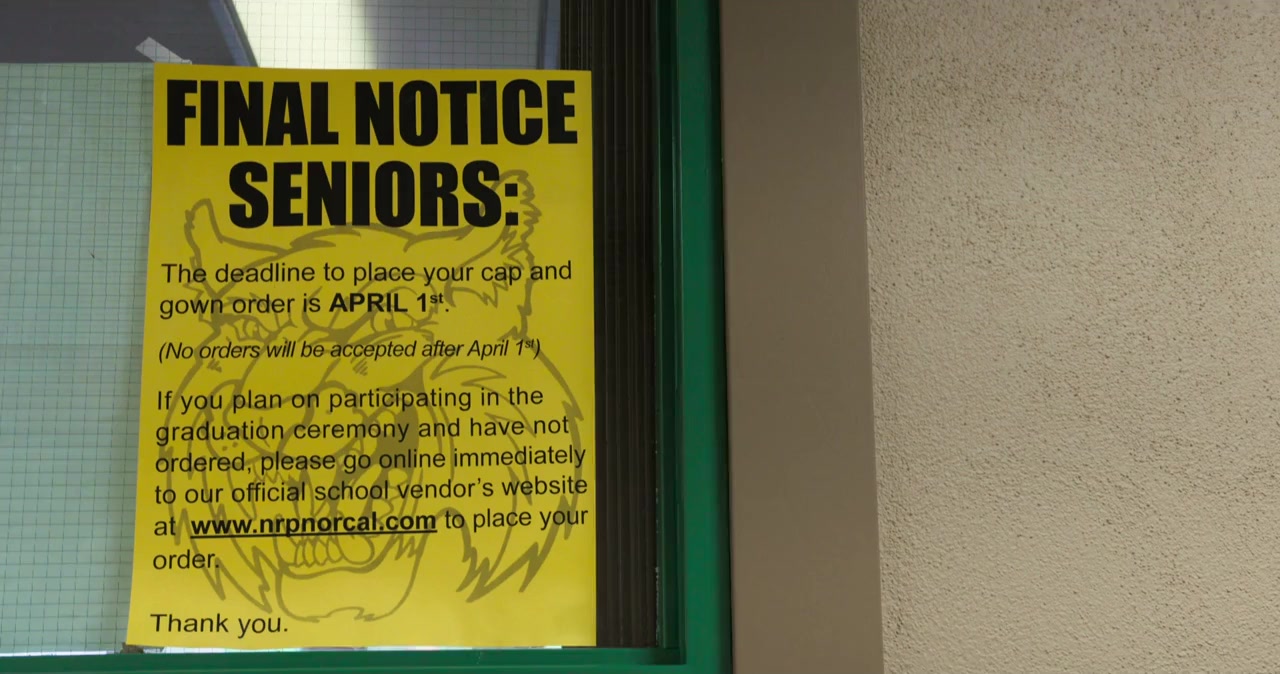 FINAL NOTICE
SENIORS:
The deadline to place your cap and
gown order is APRIL 1st.
(No orders will be accepted after April 1st)
If you plan on participating in the
graduation ceremony and have not
ordered, please go online immediately
to our official school vendor's website
at www.nrpnorcal.com to place your
order.
Thank you.